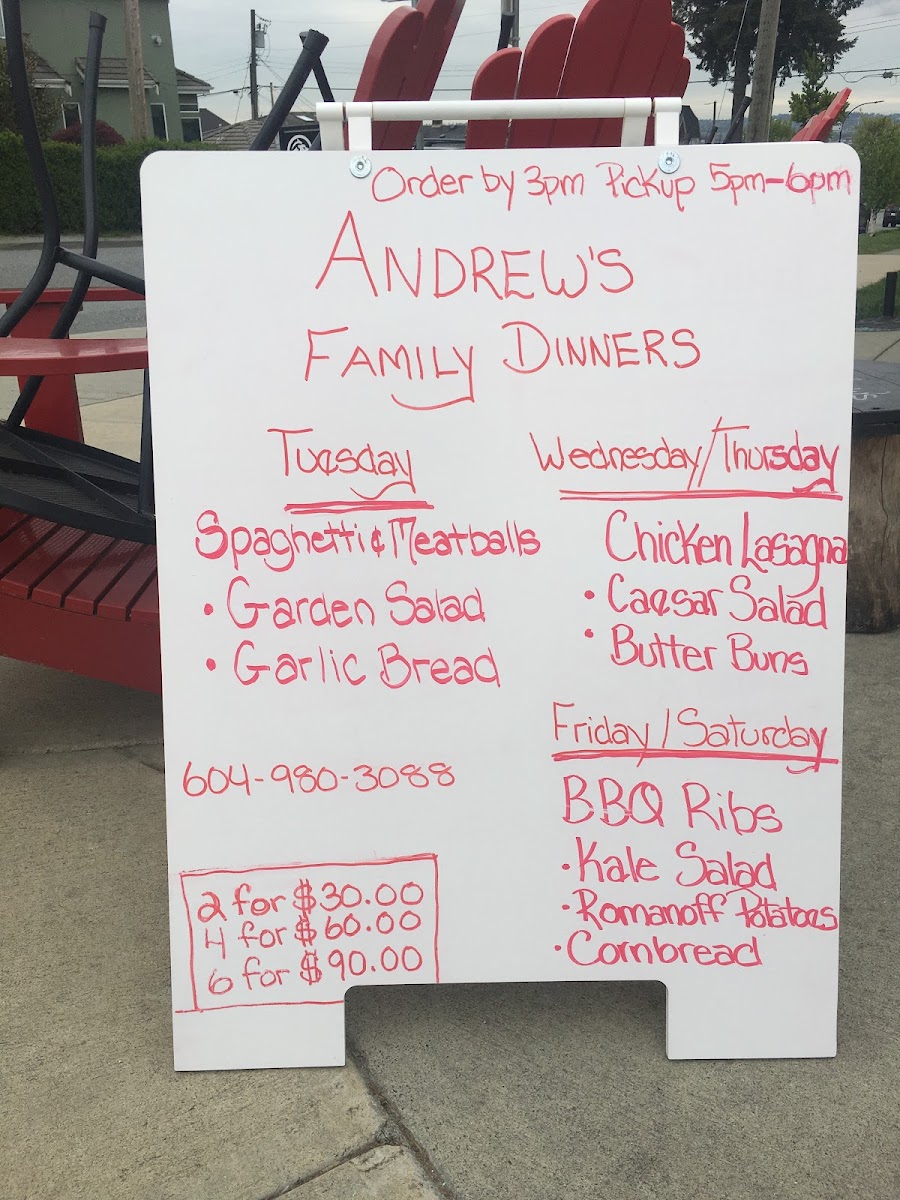 Order by 3pm Pickup 5pm-6pm
ANDREW'S
FAMILY DINNERS
Tuesday
Spaghetti & Meatballs
• Garden Salad
• Garlic Bread
Wednesday/Thursday
Chicken Lasagna
• Caesar Salad
• Butter Buns
Friday/Saturday
BBQ Ribs
• Kale Salad
• Romanoff Potatoes
• Cornbread
604-980-3088
2 for $30.00
4 for $60.00
6 for $90.00